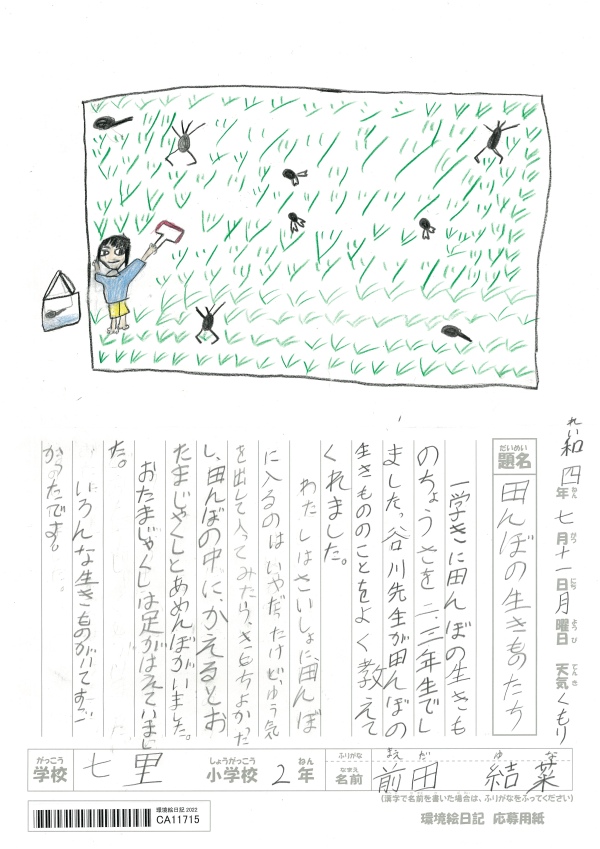 れい
令和四年七月十一日月曜日 天気くもり
ねん がつ にち ようび てんき
だいめい
題名
田んぼの生きものたち
一学きに田んぼの生きも
のちょうさを二、三年生でし
ました。谷川先生が田んぼの
生きもののことをよく教えて
くれました。
わたしはさいしょに田んぼ
に入るのはいやだったけど、ゆう気
を出して入ってみたら、きもちよかった
し、田んぼの中に、かえるとお
たまじゃくしとあめんぼがいました。
おたまじゃくしは足がはえていまし
た。
いろんな生きものがいてすご
かったです。
がっこう
学校
七里
しょうがっこう
小学校
2
ねん
年
ふりがな
まえ だ ゆ な
なまえ
名前
前田 結菜
(漢字で名前を書いた場合は、ふりがなをふってください)
環境絵日記 2022
CA11715
環境絵日記 応募用紙